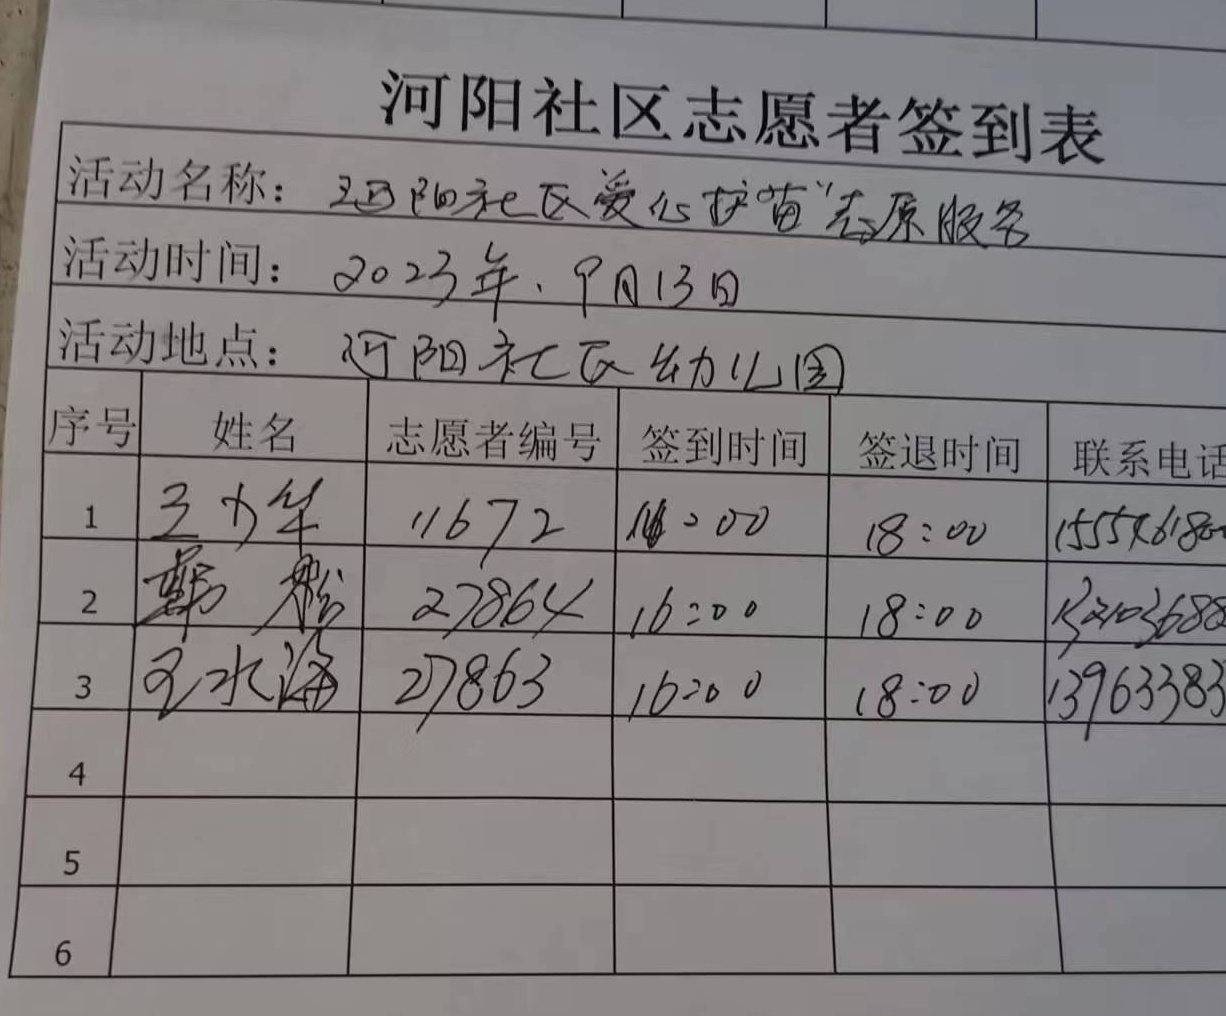 河阳社区志愿者签到表
活动名称：河阳社区爱心护苗"志愿服务
活动时间：2023年.9月13日
活动地点：河阳社区幼儿园
序号 姓名 志愿者编号 签到时间 签退时间 联系电话
1 11672 16:00 18:00
2 27864 16:00 18:00
3 王水海 27863 16:00 18:00 13963383
4
5
6